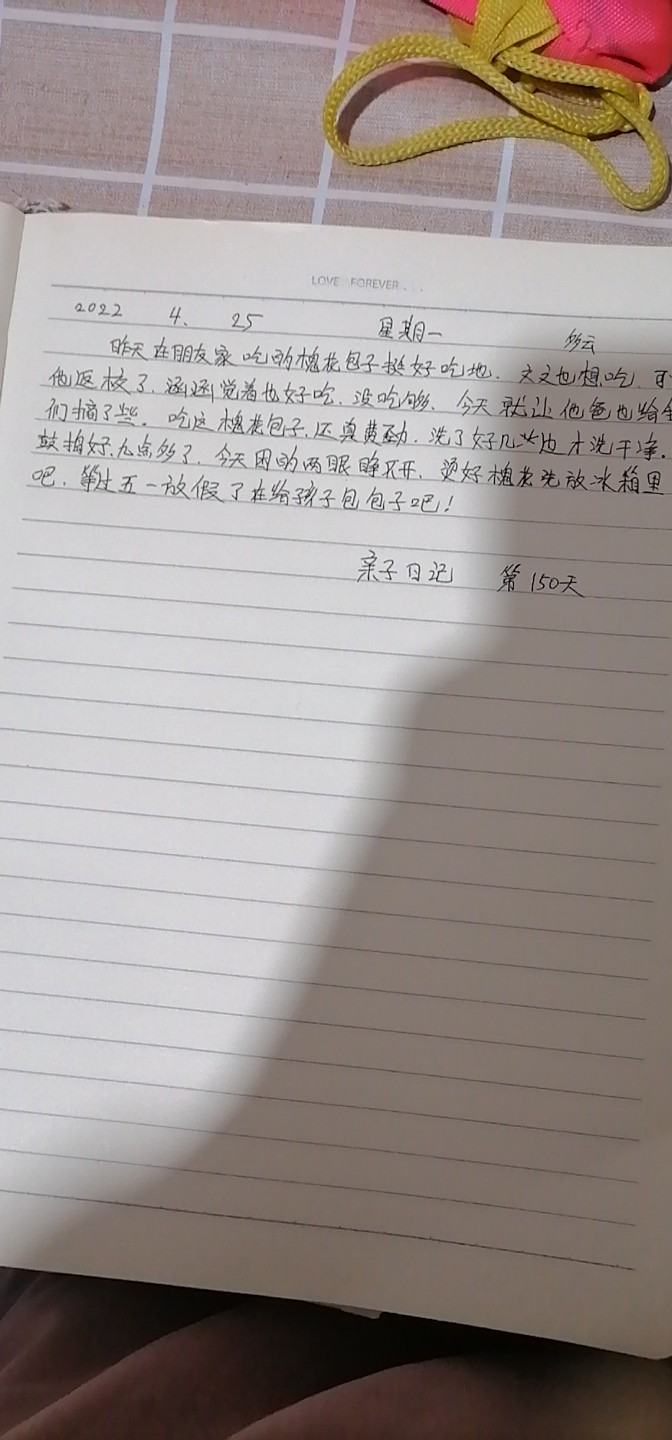 LOVE FOREVER...
2022 4. 25 星期一 多云
昨天在朋友家吃的槐花包子挺好吃地. 文文也想吃. 可
他返校了. 涵涵觉着也好吃. 没吃够. 今天就让他爸也给全
们摘了些. 吃这槐花包子, 还真费劲. 洗了好几些边才洗干净.
鼓捣好, 九点多了. 今天困的两眼睁不开. 烫好槐花先放冰箱里
吧. 等过五一放假了在给孩子包包子吧!
亲子日记 第150天